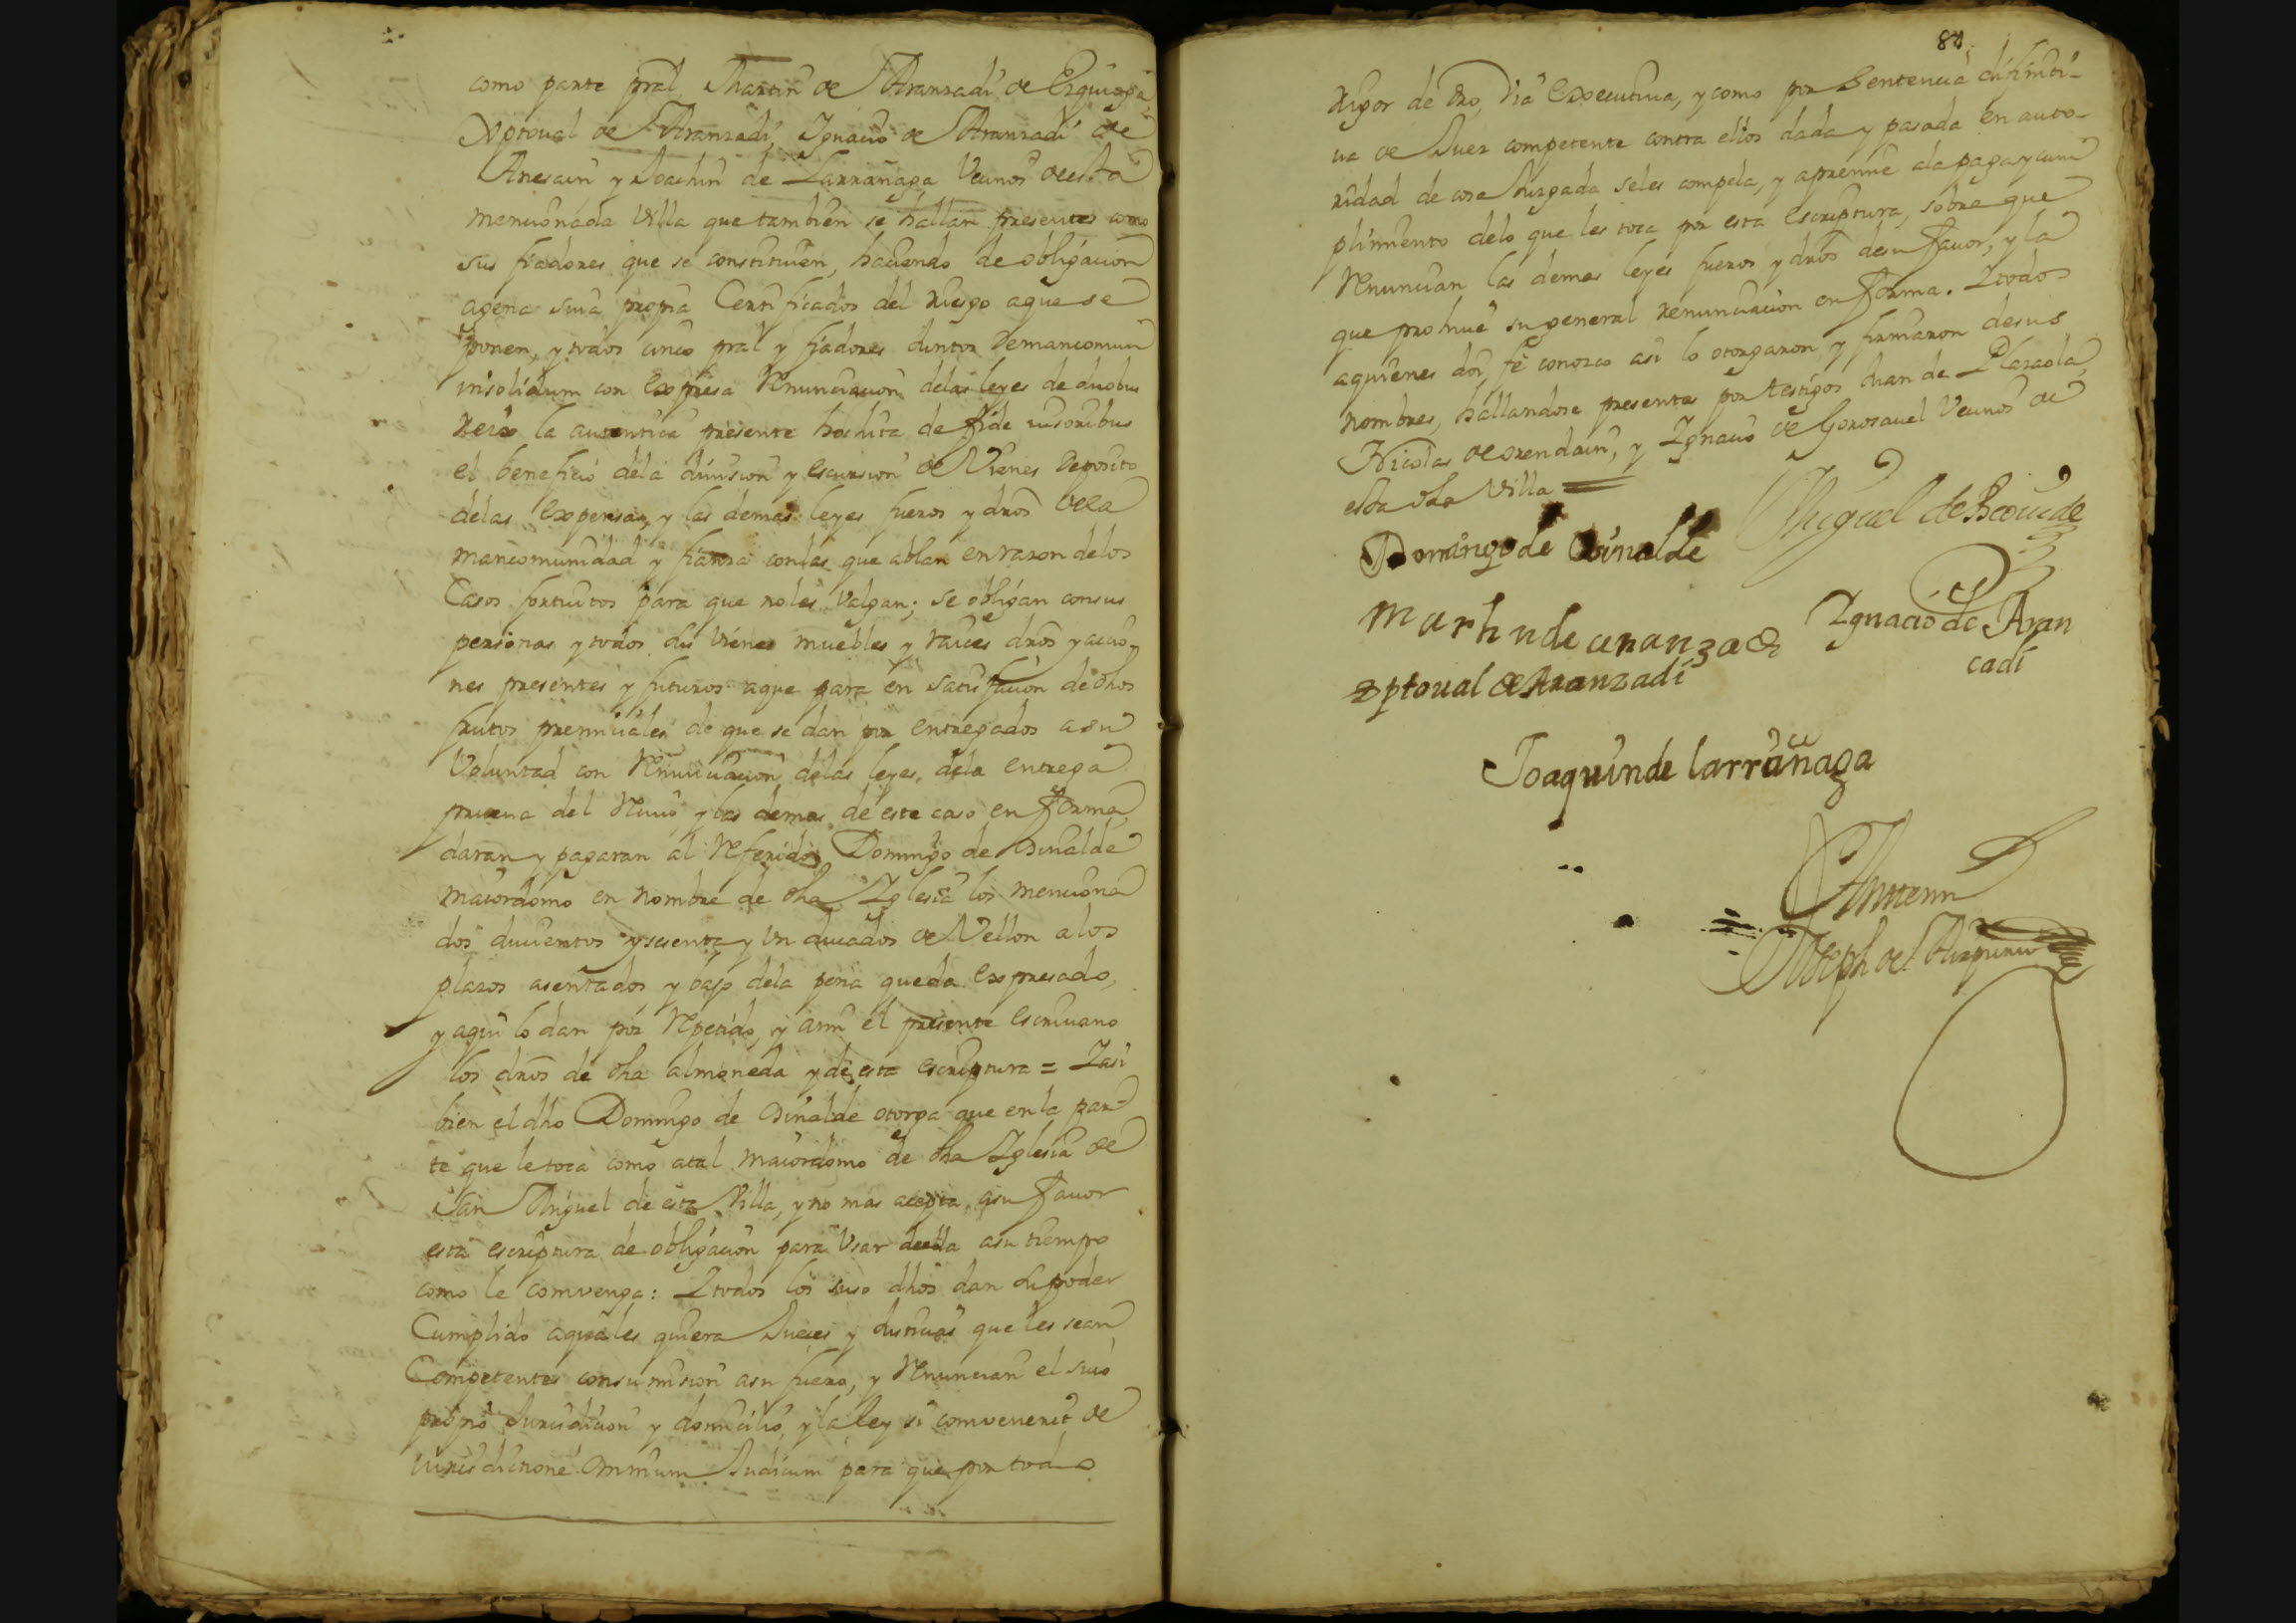 como parte pral Martin de Aranzadi de Ezquiaga
Xptoual de Aranzadi, Ignacio de Aranzadi de
Anesain y Joachin de Larrañaga Vecinos de esta
mencionada Villa que tambien se hallan presentes como
sus fiadores que se constituien, haciendo de obligacion
agena suia propia Certificados del riesgo aque se
ponen, y todos cinco pral y fiadores diuntos demancomun
insolidum con Expresa Renunciacion delas leyes de duobus
Reix la autentica presente hochita de fide iusoribus
el beneficio dela diuision y escursion de Vienes deposito
delas Expensas, y las demas leyes fueros y dros dela
mancomunidad y fianza conlas que ablan enrazon delos
Casos fortuitos para que noles Valgan; se obligan consus
personas y todos sus Vienes muebles y raices dros yaccio-
nes presentes y futuros aque para en satisfacion de dhos
frutos premiciales de que se dan por entregados asu
Voluntad con Renunciacion delas leyes dela entrega
prueua del Reciuo y las demas de este caso en forma,
daran y pagaran al Referido Domingo de Osinalde
maiordomo en nombre de dha Iglesia los menciona
dos ducientos y sesenta y Un ducados de Vellon alos
plazos asentados y bajo dela pena queda Expresado,
y aqui lo dan por Repetido, y ami el presente escriuano
los dros de dha almoneda y de esta escriptura = Iasi
bien el dho Domingo de Osinalde otorga que enla par-
te que le toca como atal maiordomo de dha Iglesia de
San Miguel de esta Villa, y no mas acepta asu fauor
esta escriptura de obligacion para Vsar deella asu tiempo
como le comvenga: I todos los suso dhos dan su poder
Cumplido aquales quiera Jueces y Justicias que les sean
Competentes consumision asu fuero, y Renuncian el suio
propio Jurisdicion y domicilio, y la ley si comvenerit de
iurisdicione omnium Judicum para que por todo
84
Rigor de dro, Via Executiua, y como por Sentencia difiniti-
ua de Juez competente contra ellos dada y pasada en auto-
ridad de cosa Juzgada seles compela, y apremie ala paga y cum
plimiento delo que les toca por esta escriptura, sobre que
Renuncian las demas leyes fueros y dros desu fauor, y la
que prohiue su general renunciacion enforma. I todos
aquienes doi fe conozco asi lo otorgaron y firmaron desus
nombres, hallandose presentes por testigos Juan de Plazaola,
Nicolas de orendain, y Ignacio de Gorosauel Vecinos de
esta dha Villa =
Domingo de Osinalde
Miguel de
Martin de aranzadi
Ignacio de Aran
cadi
xptoual de Aranzadi
Joaquin de larrañaga
Antemi
Joseph de Aizpuru